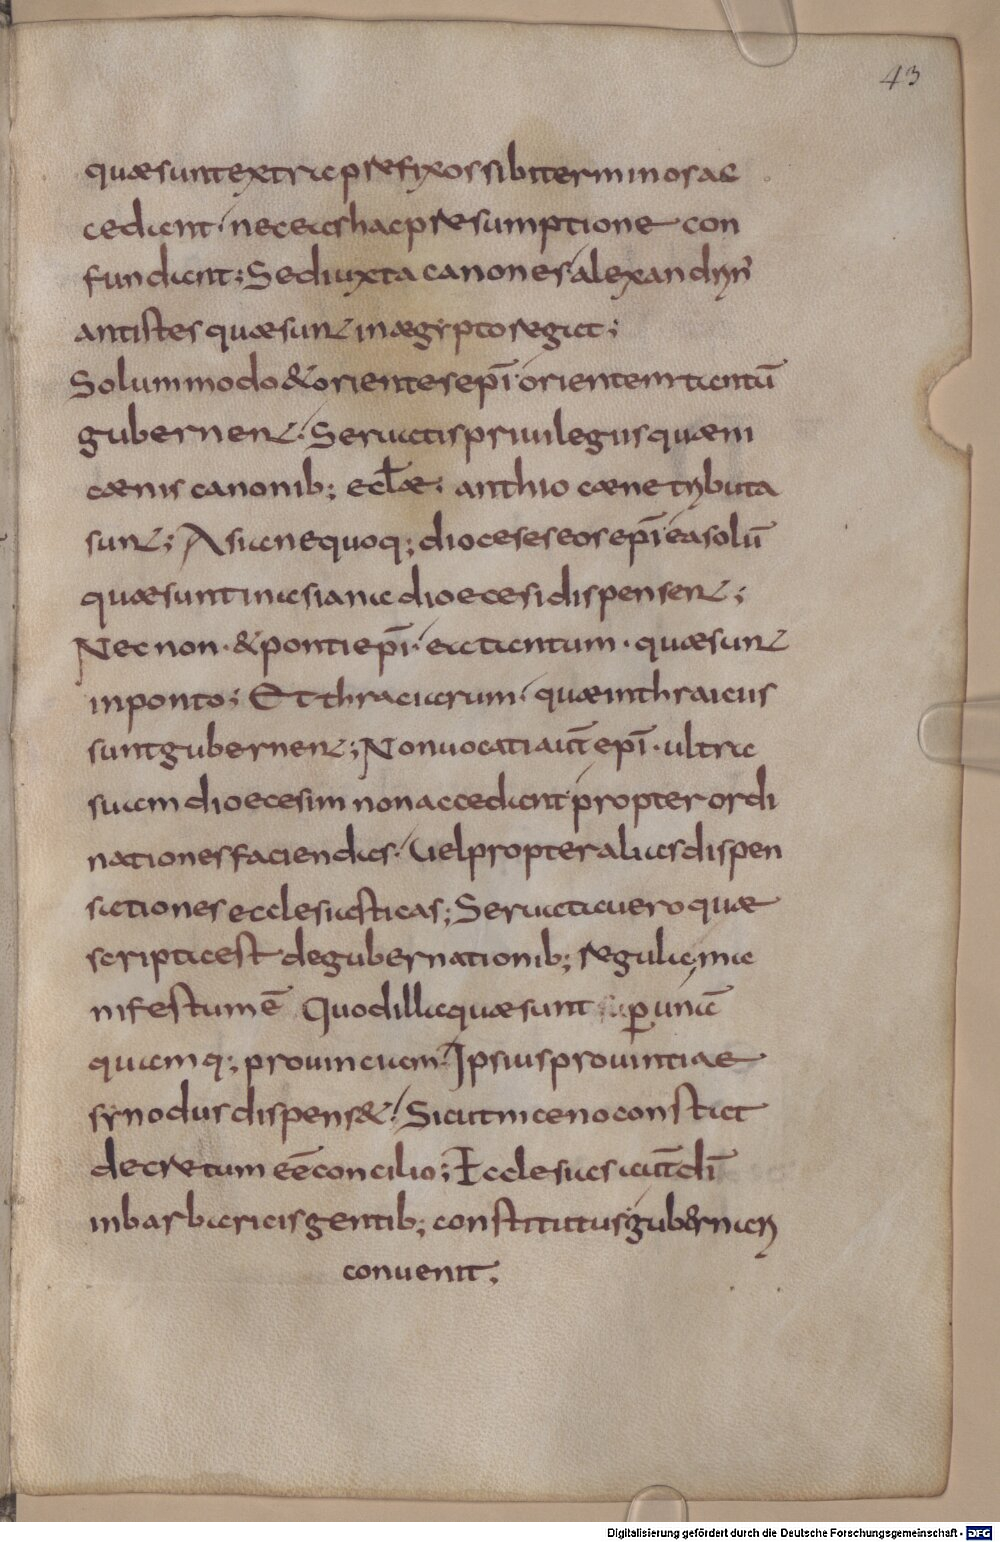 43
quæsunt extra prefixos sibi terminos ac
cedant; nec eas hac presumptione con
fundant; Sed iuxta canones alexandryn̄
antistes quæ sunt in ægypto regat;
Solummodo & orientes epī. orientem tantū
gubernent. Seruatis priuilegiis quæ ni
cænis canonib; eclæ. anthiocæne trybuta
sunt; Asianequoq; dioceseseos epī ea solū
quæ sunt in asiana dioecesi dispensent;
Nec non. & ponti epī. ea tantum. quæ sunt
in ponto; Et thraciarum. quæ in thraiciis
sunt gubernent; Non uocati aut̄ epī. ultra
suam dioecesim non accedant propter ordi
nationes faciendas. Uel propter alias dispen
sationes ecclesiasticas; Seruata uero quæ
scripta est de gubernationib; regula, ma
nifestum ē Quod illa quæ sunt per unā
quamq; prouinciam. Ipsius prouintiae
synodus dispens&. Sicut niceno constat
decretum eē concilio; Ecclesias aut̄ dī
in barbaricis gentib; constitutas gubernari
conuenit;
Digitalisierung gefördert durch die Deutsche Forschungsgemeinschaft - DFG